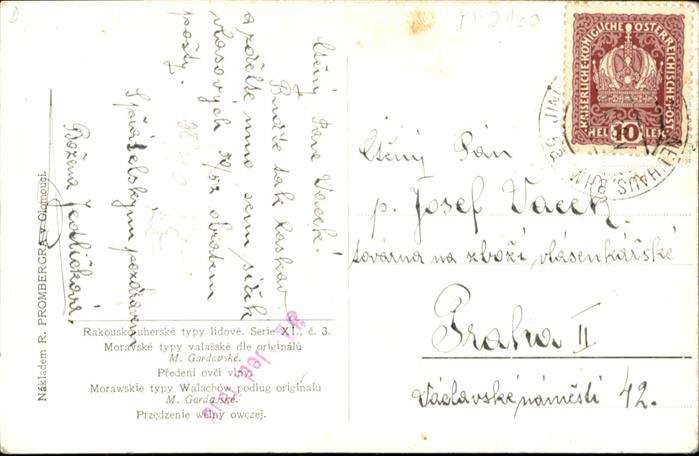 Ctěný Pane Vacek!
Buďte tak laskav
a zdělte mno sem síťek
vlasových 50/52 obratem
pošty.
S přátelským pozdravem
Božena Jedličková.
Nákladem R. PROMBERGRA v Olomouci.
Rakousko-uherské typy lidové. Serie XI., č. 3.
Moravské typy valašské dle originálů
M. Gardovské.
Předení ovčí vlny.
Morawskie typy Walachów podług originału
M. Gardovské.
Przędzenie wełny owczej.
KAISERLICHE KÖNIGLICHE ÖSTERREICHISCHE POST
HELLER 10
Ctěný Pán
p. Josef Vacek
továrna na zboží vlásenkářské
Praha II
Václavské náměstí 42.